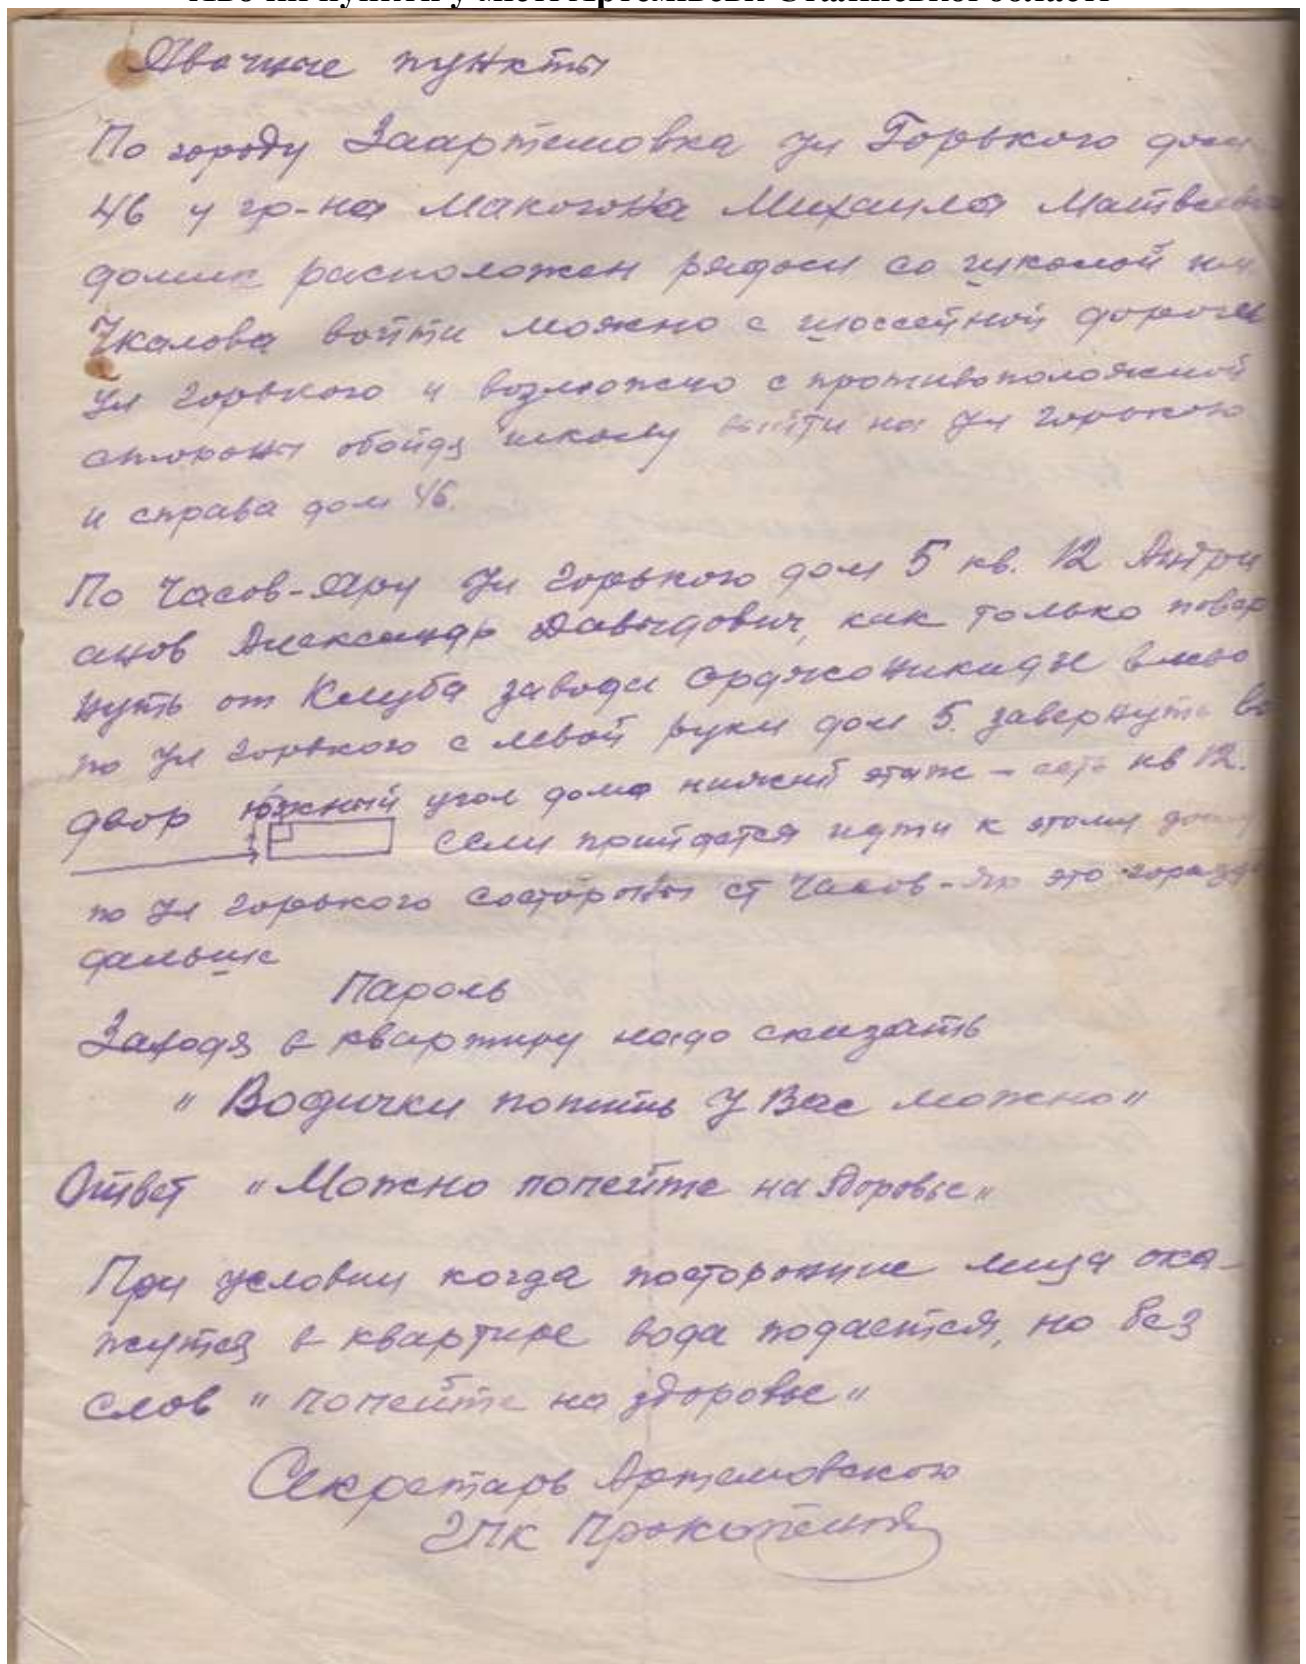 Явочные пункты
По городу Заартемовка Ул Горького дом
46 у гр-на Макогона Михаила Матвеевича
домик расположен рядом со школой им
Чкалова войти можно с шоссейной дороги
Ул Горького и возможно с противоположной
стороны обойдя школу выйти на Ул Горького
и справа дом 46.
По Часов-Яру Ул Горького дом 5 кв. 12 Андри
анов Александр Давыдович, как только повер
нуть от Клуба завода Орджоникидзе влево
по Ул Горького с левой руки дом 5. завернуть во
двор южный угол дома нижний этаж - есть кв 12.
если прийдется идти к этому дому
по Ул Горького состороны ст Часов-Яр это гораздо
дальше
Пароль
Заходя в квартиру надо сказать
" Водички попить У Вас можно "
Ответ " Можно попейте на здоровье "
При условии когда посторонние лица ока-
жутся в квартире вода подается, но без
слов " попейте на здоровье "
Секретарь Артемовского
ГПК Прокопенко